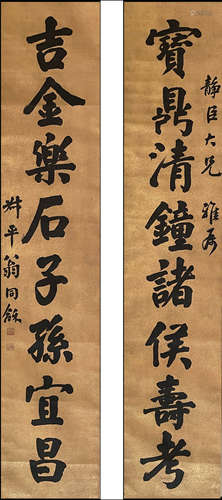 寶鼎清鐘諸侯壽考
靜臣大兄 雅屬
吉金樂石子孫宜昌
叔平翁同龢